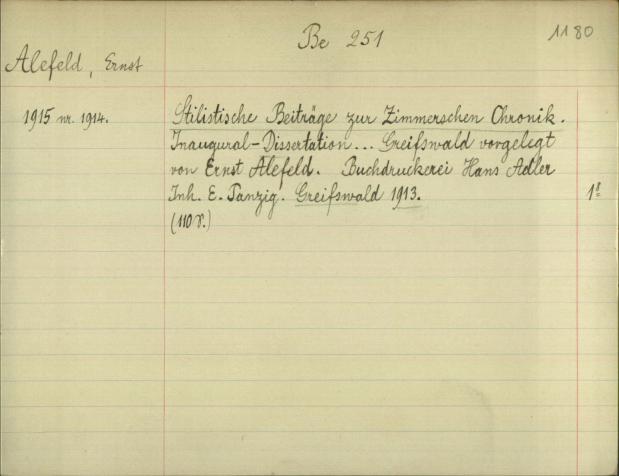 Be 251
1180
Alefeld, Ernst
1915 nr. 1914.
Stilistische Beiträge zur Zimmerschen Chronik.
Inaugural-Dissertation... Greifswald vorgelegt
von Ernst Alefeld. Buchdruckerei Hans Adler
Inh. E. Panzig. Greifswald 1913.
1 8º
(110 r.)